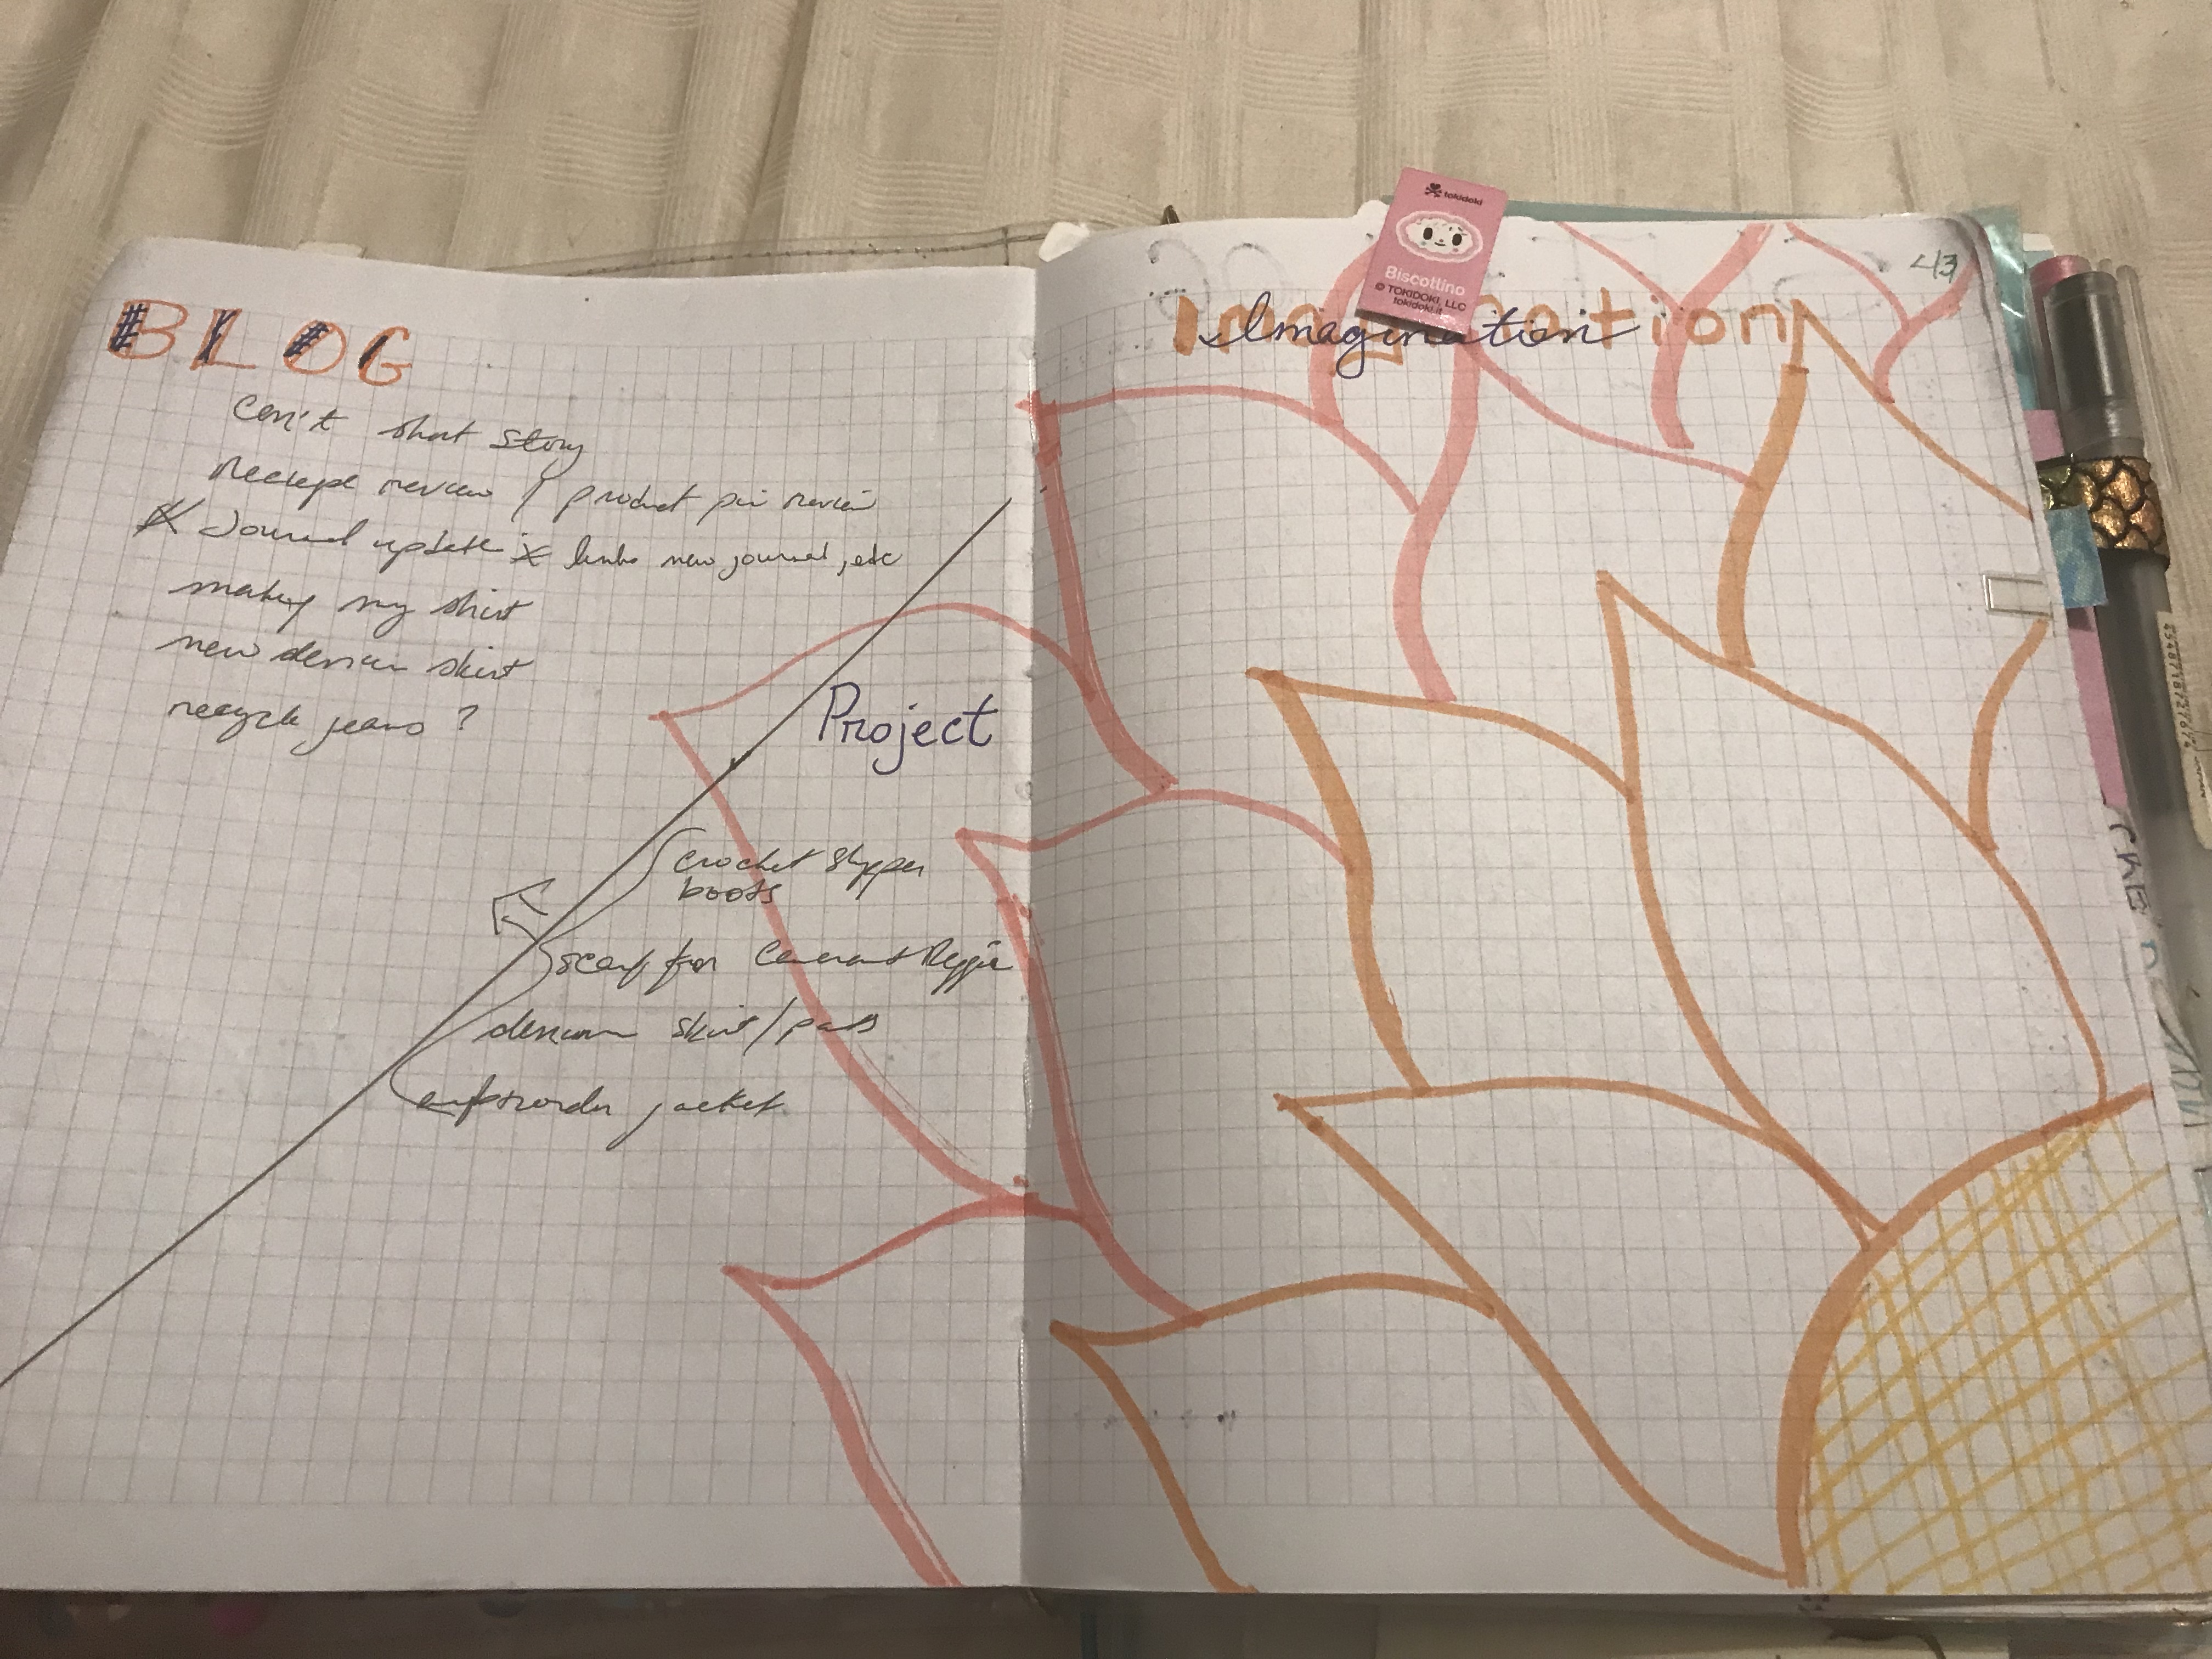 BLOG
con't short story
receipe review / product review
Journal update * links new journal, etc
making my shirt
new denim skirt
recycle jeans ?
Project
crochet slipper
boots
scarf for Reggie
denim skirt / pants
jacket
43
tokidoki
Biscottino
© TOKIDOKI, LLC
tokidoki.it
Imagination
Imagination